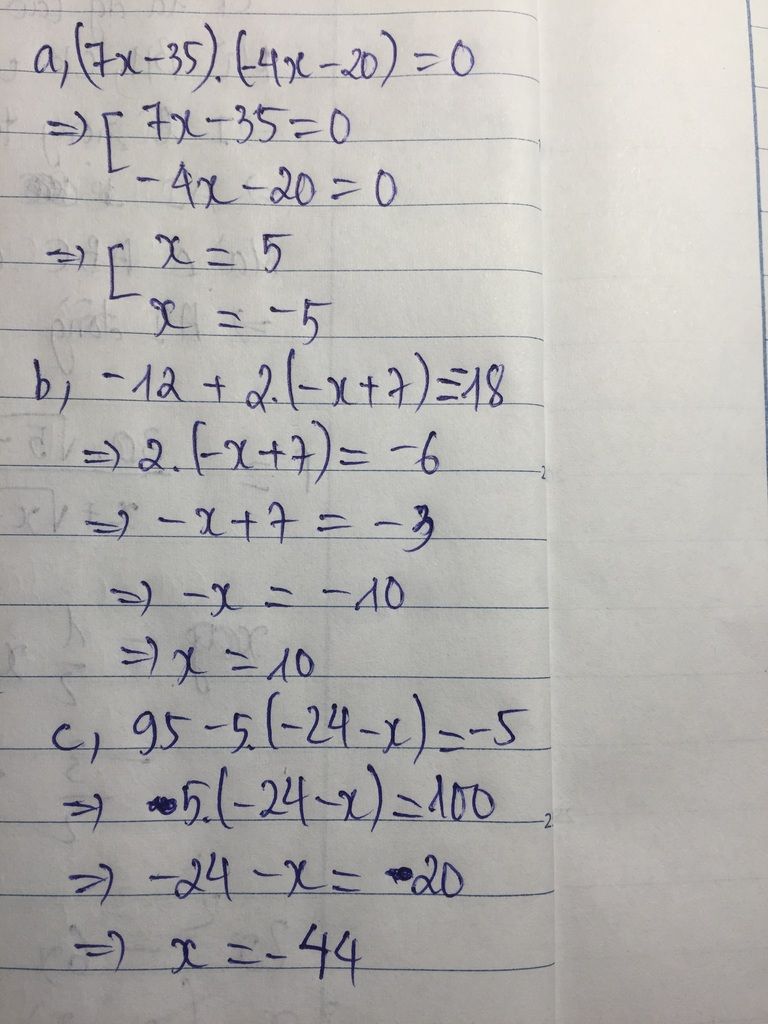 a, (7x-35).(-4x-20) = 0
=> [ 7x-35=0
-4x-20=0
=> [ x = 5
x = -5
b, -12 + 2.(-x+7) = -18
=> 2.(-x+7) = -6
=> -x+7 = -3
=> -x = -10
=> x = 10
c, 95 - 5.(-24-x) = -5
=> 5.(-24-x) = 100
=> -24 - x = 20
=> x = -44